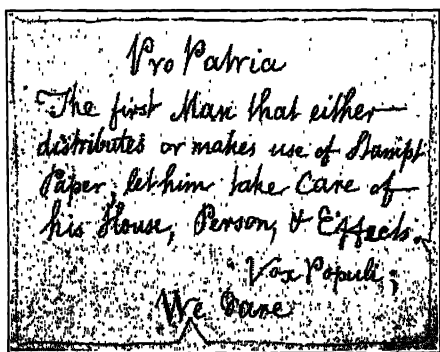 Pro Patria
The first Man that either
distributes or makes use of Stampt
Paper, let him take Care of
his House, Person, & Effects.
Vox Populi;
We Dare